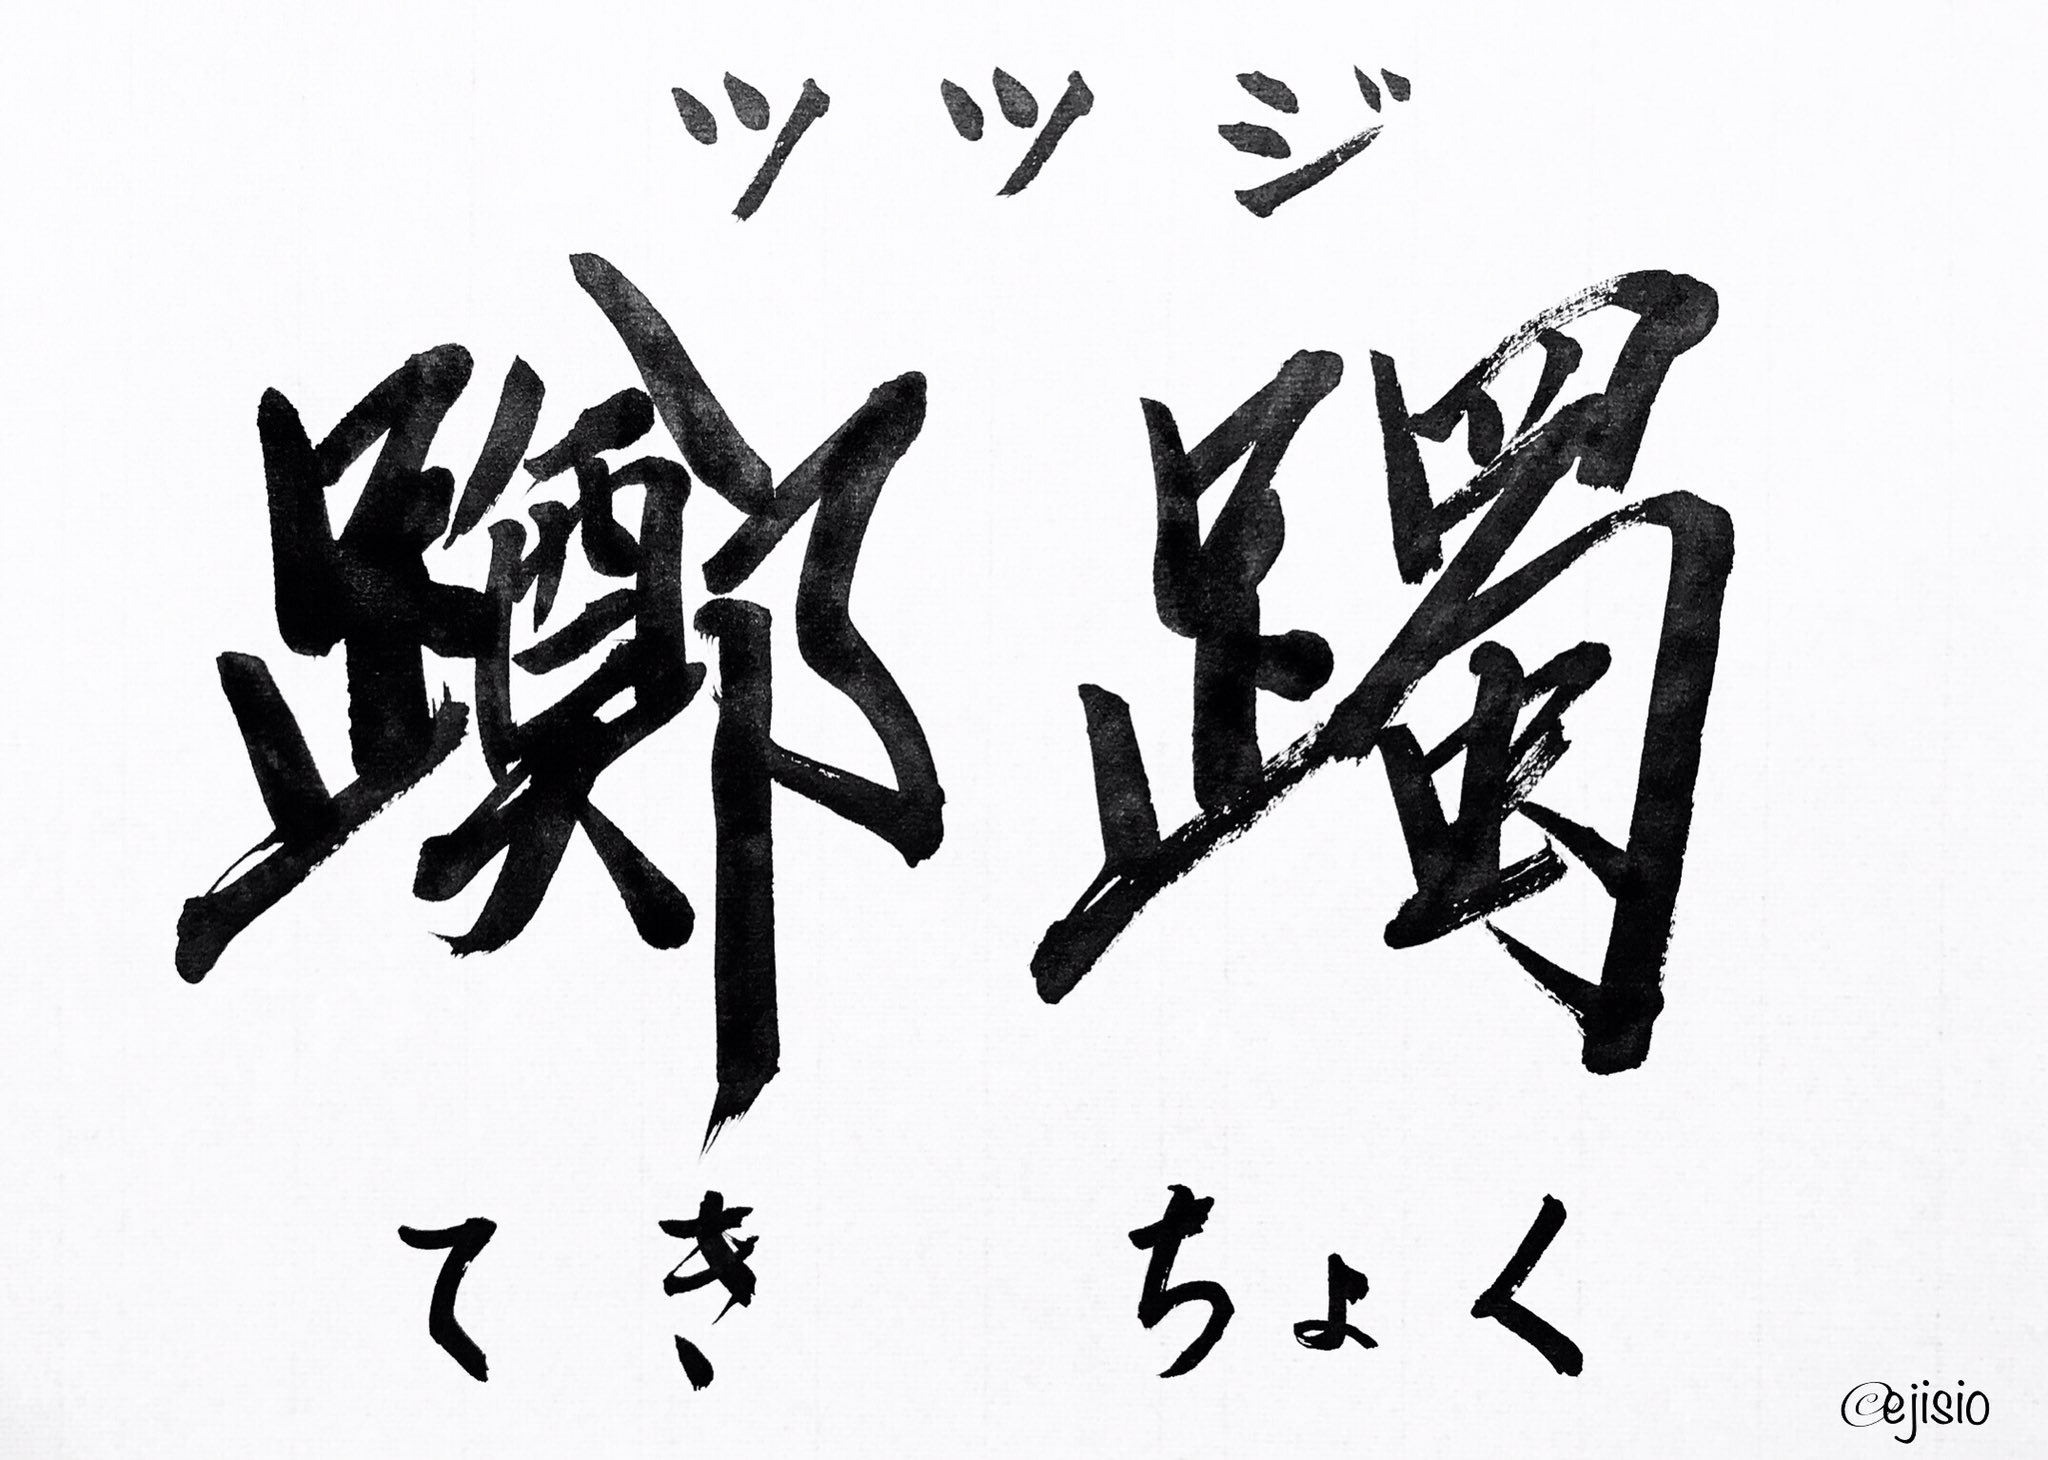 ツツジ
躑躅
てき ちょく
@ejisio